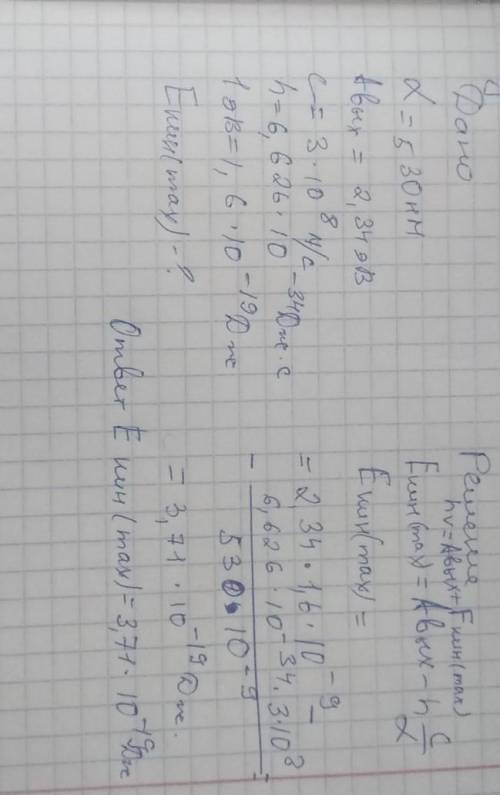 Дано
λ = 530 нм
Aвых = 2,34 эВ
c = 3·10⁸ м/с
h = 6,626·10⁻³⁴ Дж·с
1 эВ = 1,6·10⁻¹⁹ Дж
Eкин(max) - ?
Решение
hν = Aвых + Eкин(max)
Eкин(max) = Aвых - h c/λ
Eкин(max) =
= 2,34·1,6·10⁻⁹ -
- 6,626·10⁻³⁴·3·10⁸ / 530·10⁻⁹ =
= 3,71·10⁻¹⁹ Дж.
Ответ Eкин(max) = 3,71·10⁻¹⁹ Дж